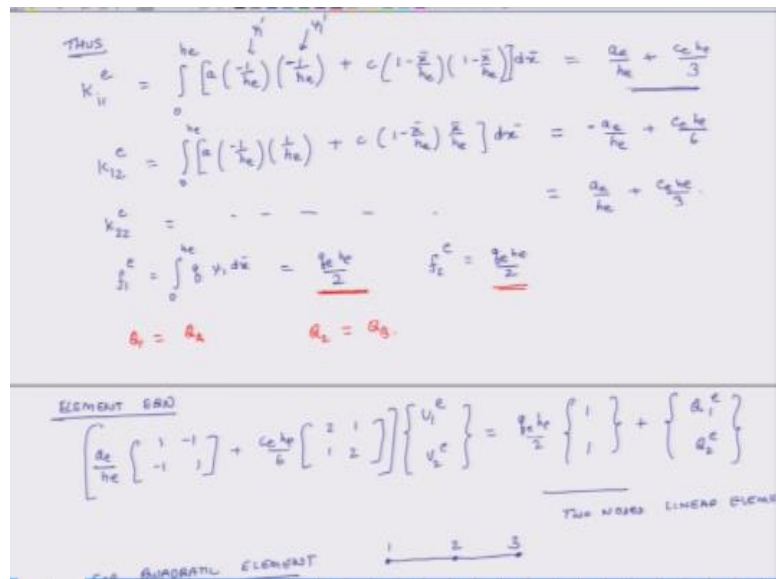 ψ₁' ψ₁'
THUS
K₁₁ᵉ = ∫₀^he [a(-1/he)(-1/he) + c(1-x̄/he)(1-x̄/he)]dx̄ = ae/he + ce he/3
K₁₂ᵉ = ∫₀^he [a(-1/he)(1/he) + c(1-x̄/he) x̄/he] dx̄ = -ae/he + ce he/6
K₂₂ᵉ = - - - - . = ae/he + ce he/3.
f₁ᵉ = ∫₀^he q ψ₁ dx̄ = qe he/2 f₂ᵉ = qe he/2
Q₁ = QA Q₂ = QB.
ELEMENT EQN
[ae/he [1 -1; -1 1] + ce he/6 [2 1; 1 2]] {U₁ᵉ; U₂ᵉ} = qe he/2 {1; 1} + {Q₁ᵉ; Q₂ᵉ}
TWO NODED LINEAR ELEME
FOR QUADRATIC ELEMENT 1 2 3